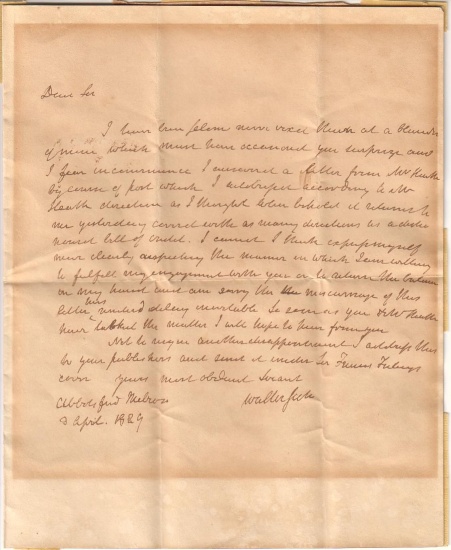 Dear Sir
I have been seldom more vexed than at a blunder
of mine which must have occasioned you surprize and
I fear inconvenience I answered a letter from Mr Heath
by course of post which I addressd according to Mr
Heath direction as I thought when behold it returns to
me yesterday coverd with as many directions as a
I cannot I think express myself
more clearly respecting the manner in which I am willing
to fulfill my engagement with you or to return the balance
in my hand and am sorry the the miscarriage of this
letter has renderd delay inevitable So soon as you & Mr Heath
have talked the matter I will hope to hear from you
Not to incur another disappointment I address this
to your publishers and send it under Sir Francis
cover yours most obedient Servant
Abbotsford Melrose Walter Scott
April. 1829